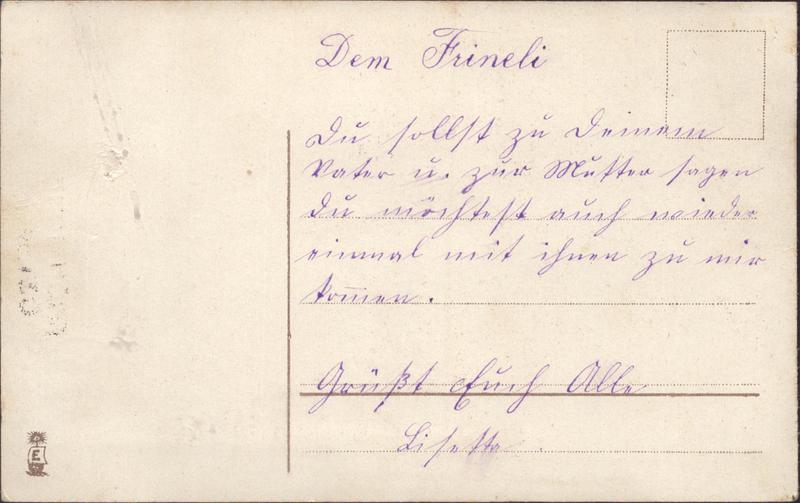 Dem Frineli
Du sollst zu Deinem
Vater u. zur Mutter sagen
du möchtest auch wieder
einmal mit ihnen zu mir
kom̅en.
Grüßt Euch Alle
Lisette
E